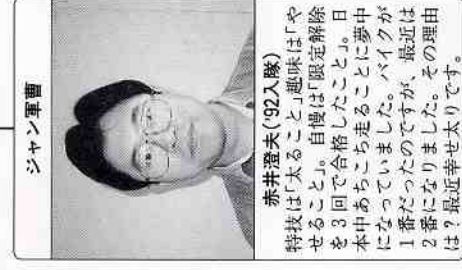 ジャン軍曹
赤井澄夫('92入隊)
特技は「太ること」趣味は「や
せること」。自慢は「限定解除
を3回で合格したこと」。日
本中あちこち走ることに夢中
になっていました。バイクが
1番だったのですが、最近は
2番になりました。その理由
は？最近幸せ太りです。